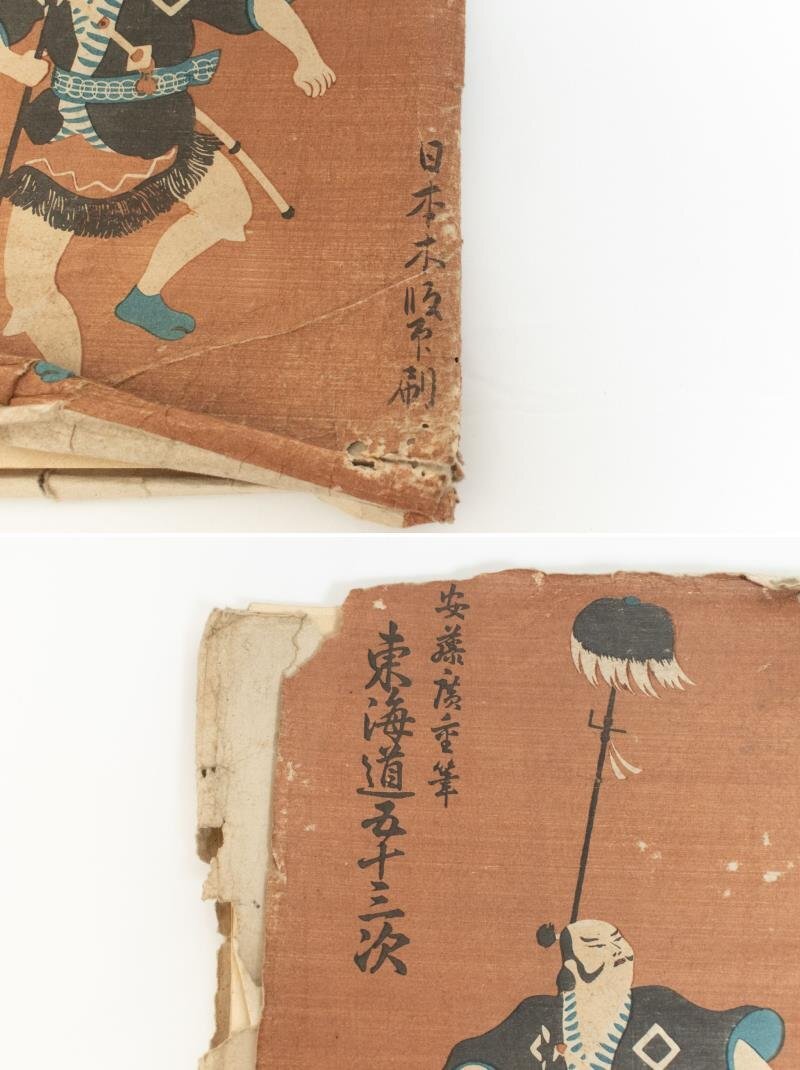 日本木版印刷
安藤廣重筆
東海道五十三次